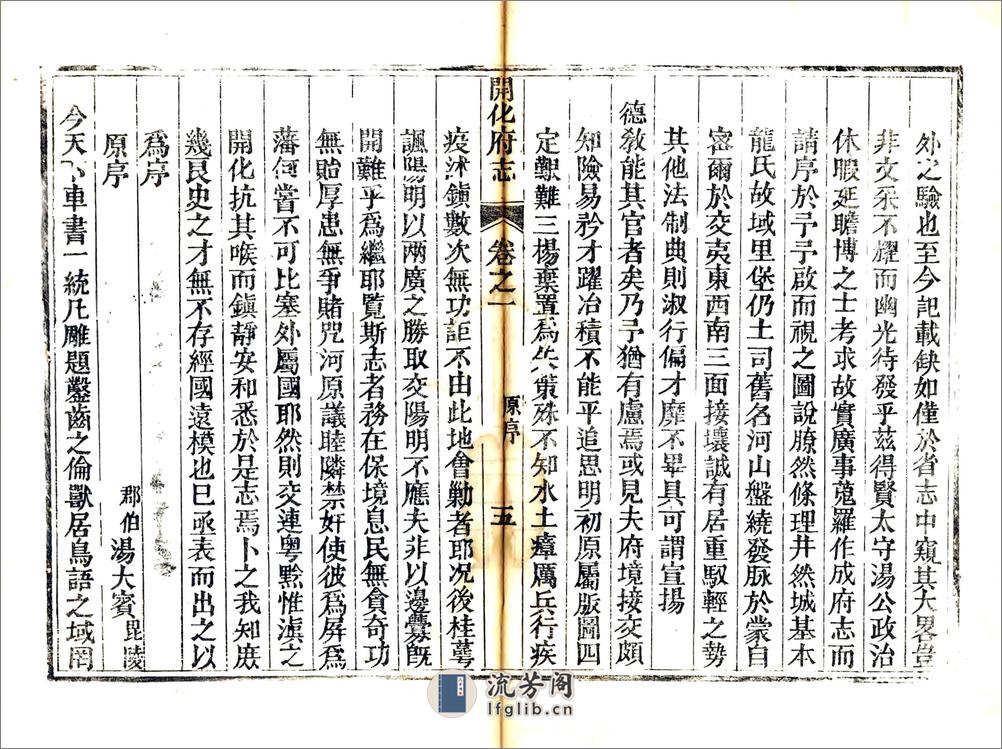 外之驗也至今記載缺如僅於省志中窺其大畧豈
非文采不耀而幽光待發乎茲得賢太守湯公政治
休暇延瞻博之士考求故實廣事蒐羅作成府志而
請序於予予啟而視之圖說瞭然條理井然城基本
龍氏故域里堡仍土司舊名河山盤繞發脈於蒙自
密爾於交夷東西南三面接壤誠有居重馭輕之勢
其他法制典則淑行偏才靡不畢具可謂宣揚
德敎能其官者矣乃予猶有慮焉或見夫府境接交頗
知險易矜才躍冶積不能平追思明初原屬版圖四
定艱難三楊棄置為失策殊不知水土瘴厲兵行疾
疫沭鎮數次無功詎不由此地會勦者耶况後桂萼
諷陽明以兩廣之勝取交陽明不應夫非以邊釁旣
開難乎為繼耶覧斯志者務在保境息民無貪奇功
無貽厚患無爭賭咒河原議睦隣禁奸使彼為屏為
藩何嘗不可比塞外屬國耶然則交連粵黔惟滇之
開化抗其喉而鎮靜安和悉於是志焉卜之我知庶
幾良史之才無不存經國遠模也巳亟表而出之以
為序
原序
郡伯湯大賓毘陵
今天下車書一統凡雕題鑿齒之倫獸居鳥語之域罔
開化府志
卷之一
原序
五
流芳阁
lfglib.cn